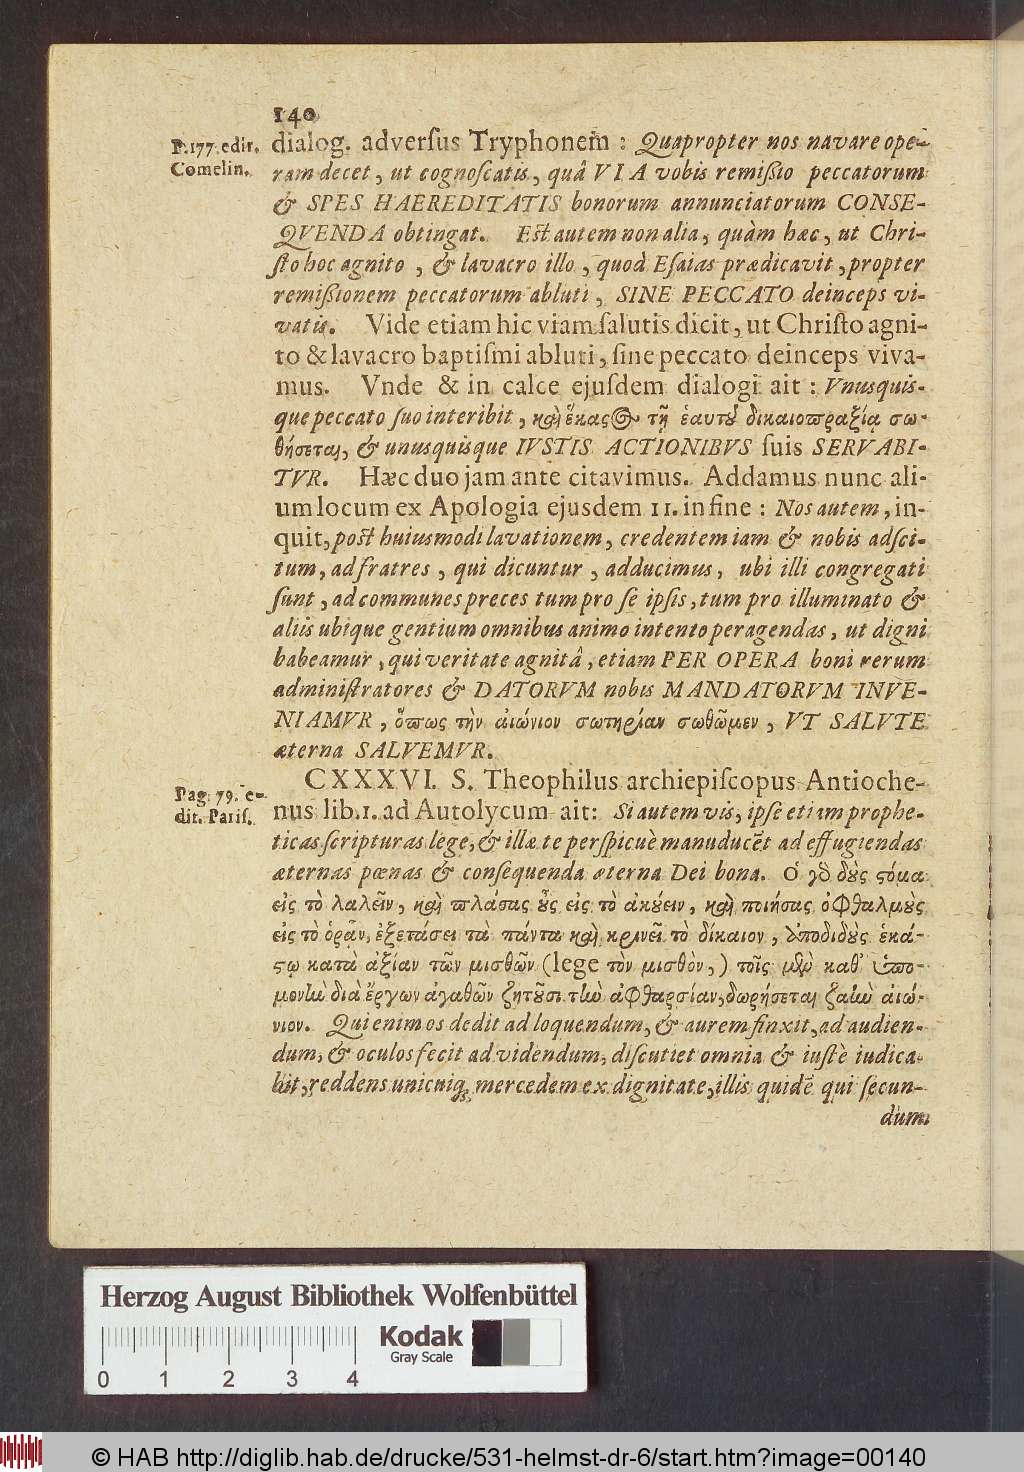 140
P. 177. edit.
Comelin.
dialog. adverſus Tryphonem : Quapropter nos navare ope-
ram decet, ut cognoſcatis, quâ VIA vobis remiſsio peccatorum
& SPES HAEREDITATIS bonorum annunciatorum CONSE-
QVENDA obtingat. Eſt autem non alia, quàm hæc, ut Chri-
ſto hoc agnito, & lavacro illo, quod Eſaias prædicavit, propter
remiſsionem peccatorum abluti, SINE PECCATO deinceps vi-
vatis. Vide etiam hic viam ſalutis dicit, ut Chriſto agni-
to & lavacro baptiſmi abluti, ſine peccato deinceps viva-
mus. Vnde & in calce ejuſdem dialogi ait : Vnusquis-
que peccato ſuo interibit, καὶ ἕκαςος τῇ ἑαυτοῦ δικαιοπραξίᾳ σω-
θήσεται, & unusquisque IVSTIS ACTIONIBVS ſuis SERVABI-
TVR. Hæc duo jam ante citavimus. Addamus nunc ali-
um locum ex Apologia ejusdem 11. in fine : Nos autem, in-
quit, poſt huiusmodi lavationem, credentem iam & nobis adſci-
tum, ad fratres, qui dicuntur, adducimus, ubi illi congregati
ſunt, ad communes preces tum pro ſe ipſis, tum pro illuminato &
aliis ubique gentium omnibus animo intento peragendas, ut digni
habeamur, qui veritate agnitâ, etiam PER OPERA boni rerum
adminiſtratores & DATORVM nobis MANDATORVM INVE-
NIAMVR, ὅπως τὴν αἰώνιον σωτηρίαν σωθῶμεν, VT SALVTE
æterna SALVEMVR.
Pag. 79. e-
dit. Pariſ.
CXXXVI. S. Theophilus archiepiſcopus Antioche-
nus lib. 1. ad Autolycum ait: Si autem vis, ipſe etiam prophe-
ticas ſcripturas lege, & illæ te perſpicuè manuducẽt ad effugiendas
æternas pœnas & conſequenda æterna Dei bona. Ὁ γὸ δοὺς ςόμα
εἰς τὸ λαλεῖν, καὶ πλάσας οὖς εἰς τὸ ἀκούειν, καὶ ποιήσας ὀφθαλμοὺς
εἰς τὸ ὁρᾷν, ἐξετάσει τὰ πάντα καὶ κρινεῖ τὸ δίκαιον, ἀποδιδοὺς ἑκά-
ςῳ κατὰ ἀξίαν τῶν μισθῶν (lege τὸν μισθὸν,) τοῖς μὲν καθ᾽ ὑπο-
μονὴν διὰ ἔργων ἀγαθῶν ζητοῦσι τὴν ἀφθαρσίαν, δωρήσεται ζωὴν αἰώ-
νιον. Qui enim os dedit ad loquendum, & aurem finxit, ad audien-
dum, & oculos fecit ad videndum, diſcutiet omnia & iuſtè iudica-
bit, reddens unicuiq; mercedem ex dignitate, illis quidẽ qui ſecun-
dum
Herzog August Bibliothek Wolfenbüttel
Kodak
Gray Scale
0 1 2 3 4
© HAB http://diglib.hab.de/drucke/531-helmst-dr-6/start.htm?image=00140